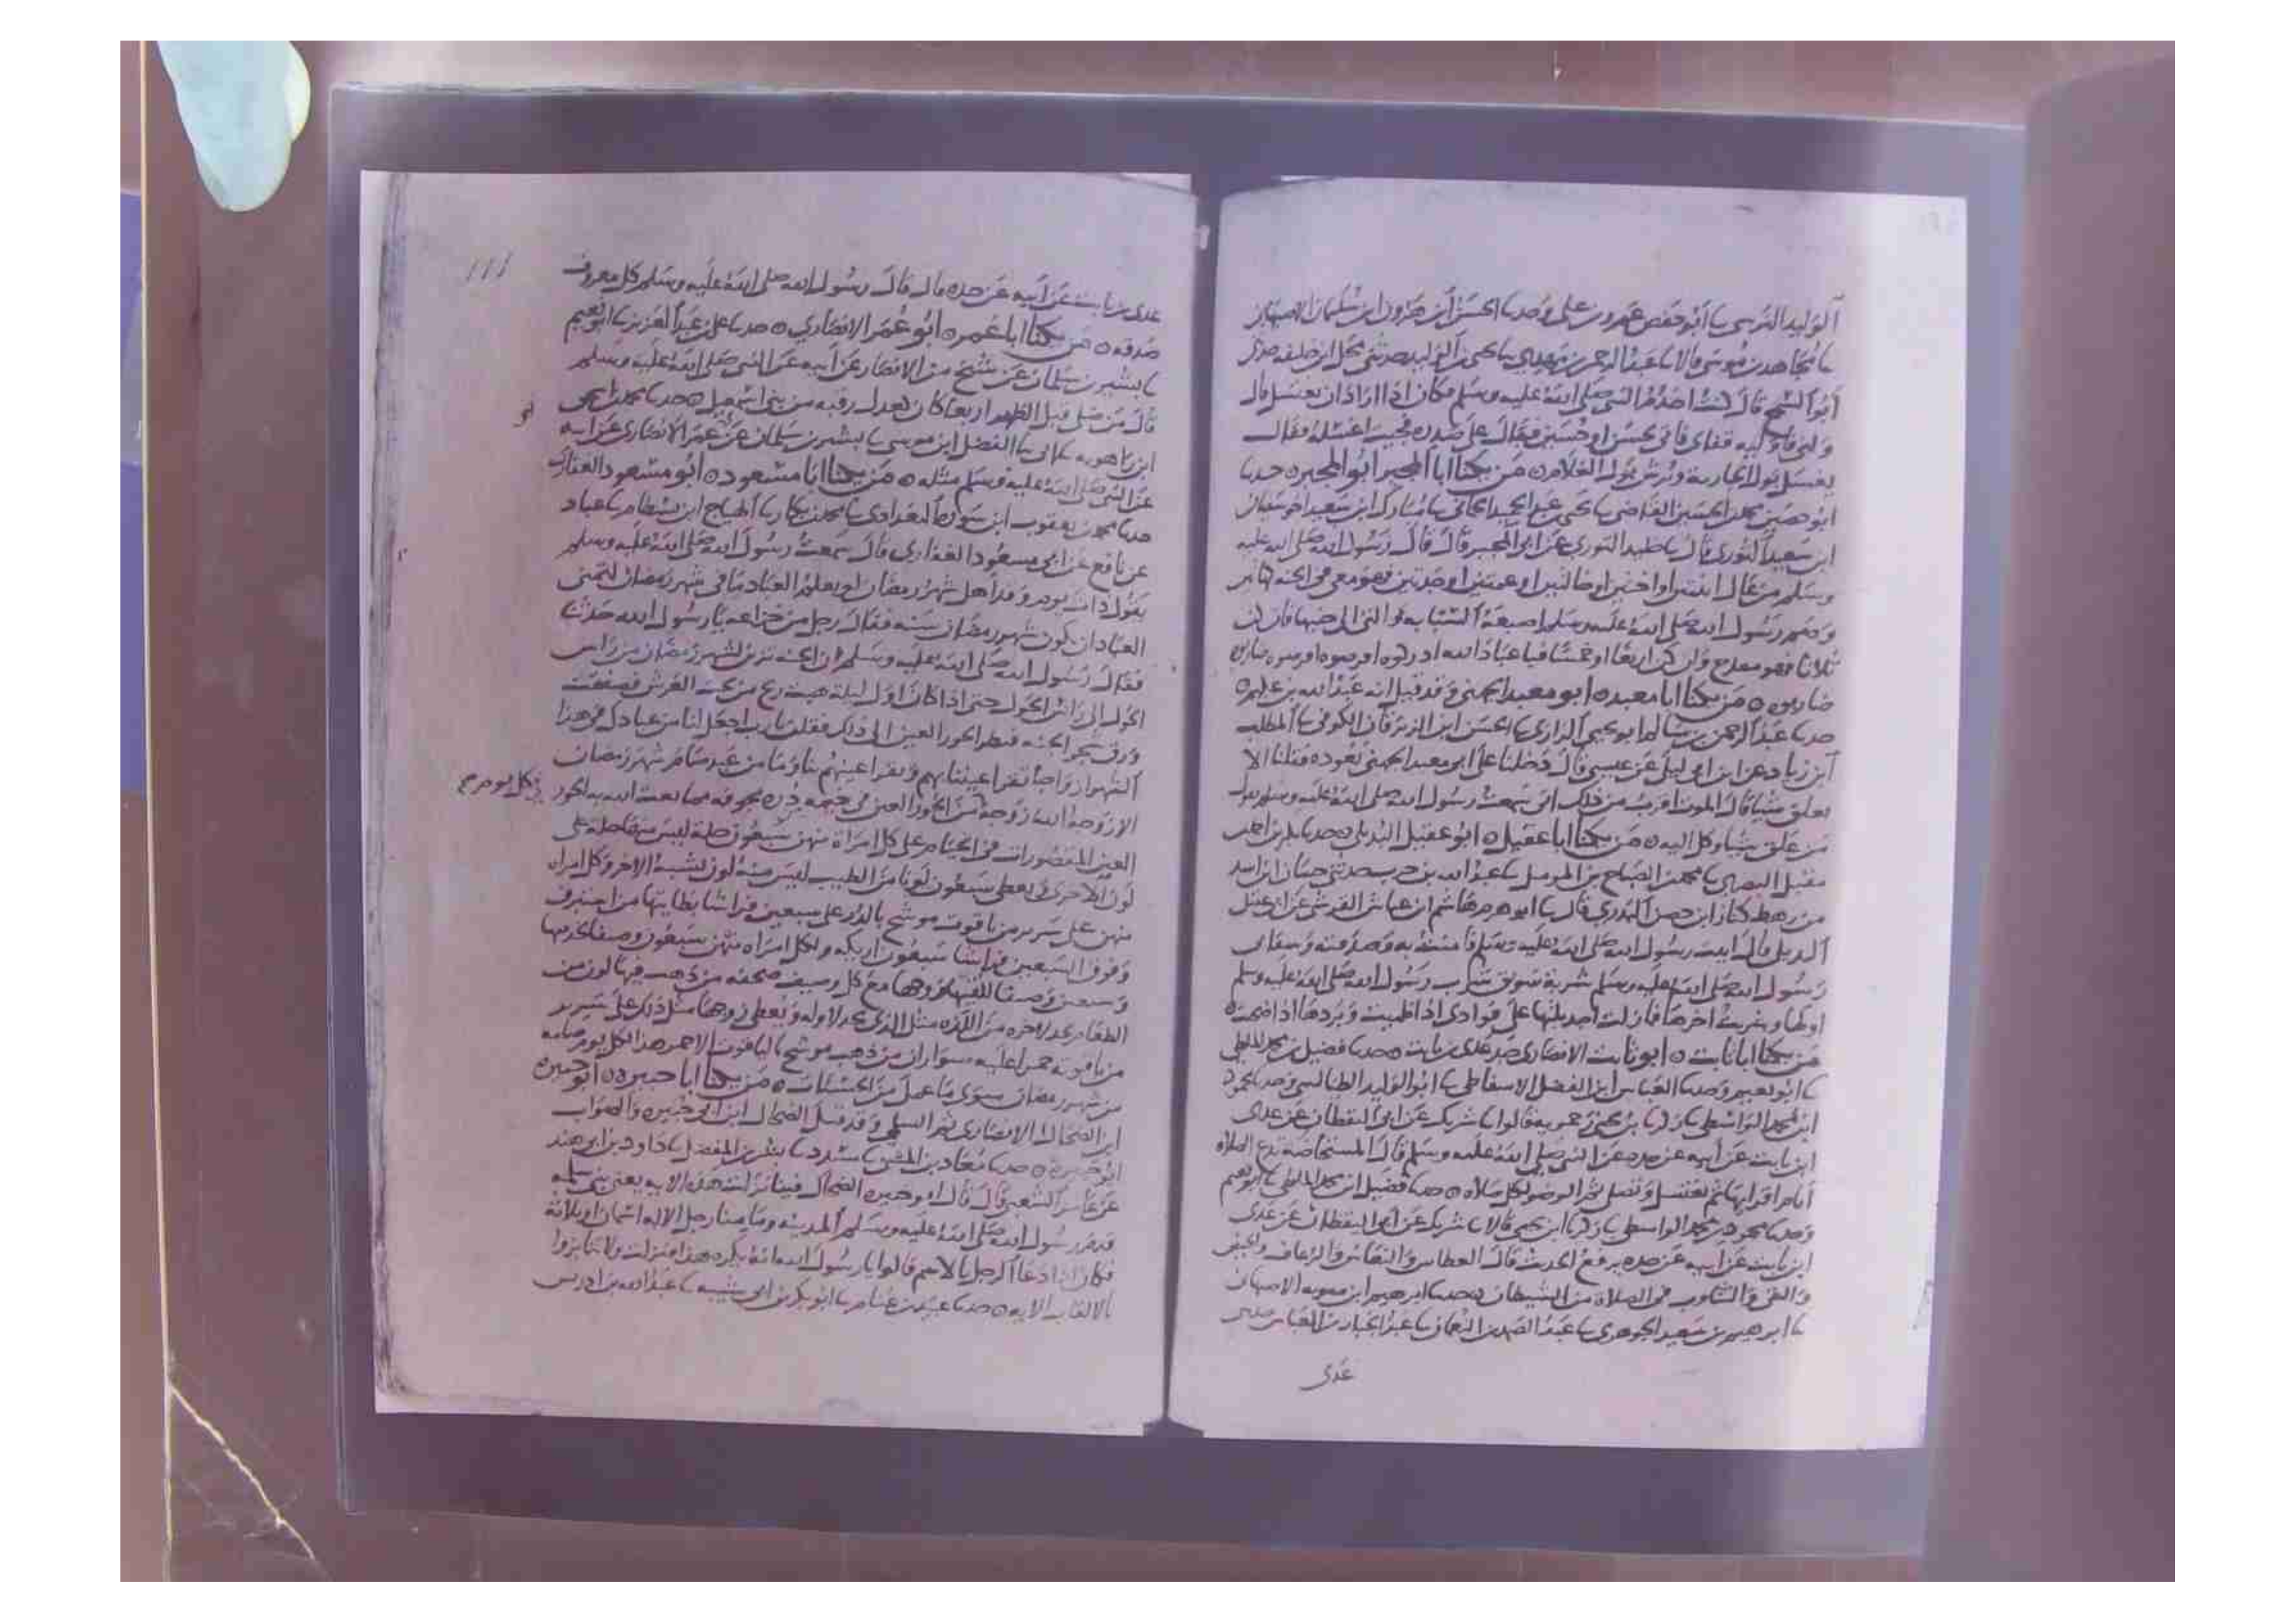 الوليد النرسي نا أبو حفص عمرو بن علي وحدنا الحسن ابن هرون ابن سليمان الاصبهاني
نا مجاهد بن موسى قالا نا عبد الرحمن بن مهدي نا يحيى بن الوليد حدثني محل ابن خليفه حدثني
أبو السمح قال كنت اخدم النبي صلى الله عليه وسلم فكان اذا اراد ان يغتسل قال
ولني فاوليه قفاي فاتي بحسن او حسين فبال على صدره فجيت اغسله فقال
يغسل بول الجارية ويرش بول الغلام ٥ من يكنا ابا المجبر ابو المجبر ٥ حدنا
ابو حصين محمد بن الحسين القاضي نا يحيى بن عبد الحميد الحماني نا مبارك ابن سعيد اخو سفيان
ابن سعيد الثوري قال نا الثوري عن ابي المجبر قال قال رسول الله صلى الله عليه
وسلم من عال ابنتين او اختين او خالتين او عمتين او جدتين فهو معي في الجنه كهاتين
وضم رسول الله صلى الله عليه وسلم اصبعه السبابه والتي الى جنبها فان كن
ثلاثا فهو مفرح وان كن اربعا او خمسا فيا عباد الله ادركوه اقرضوه اقرضوه ضاربوه
ضاربوه ٥ من يكنا ابا معبد ٥ ابو معبد الجهني وقد قيل انه عبد الله بن عكيم ٥
حدنا عبد الرحمن بن سالم ابو يحيى الرازي نا الحسن ابن الزبرقان الكوفي نا المطلب
ابن زياد عن ابن ابي ليلى عن عيسى قال دخلنا على ابي معبد الجهني نعوده فقلنا الا
تعلق شيا قال الموت اقرب من ذلك اني سمعت رسول الله صلى الله عليه وسلم يقول
من علق شيا وكل اليه ٥ من يكنا ابا عقيل ٥ ابو عقيل البديلي ٥ حدنا
مقبل البصري نا محمد بن الصباح بن نا عبد الله بن حرب حدثني ابن اسد
من رهط كناز ابن حصن قال نا ابو هاشم ابن عياش القرشي عن ابي عقيل
قال اتيت رسول الله صلى الله عليه وسلم فامنت به وصدقته وسقاني
رسول الله صلى الله عليه وسلم شربة سويق شرب رسول الله صلى الله عليه وسلم
اولها وشربت اخرها فما زلت اجد بلتها على فوادي اذا ظميت وبردها اذا اضحيت ٥
من يكنا ابا ثابت ٥ ابو ثابت الانصاري جد عدي بن ثابت ٥ حدنا فضيل بن محمد الملطي
نا ابو نعيم وحدنا العباس ابن الفضل الاسفاطي نا ابو الوليد الطيالسي وحدنا محمود
ابن محمد الواسطي نا زكريا بن يحيى زحمويه قالوا نا شريك عن ابي اليقظان عن عدي
ابن ثابت عن أبيه عن جده عن النبي صلى الله عليه وسلم قال المستحاضة تدع الصلاة
أيام اقرايها ثم تغتسل وتصلي الوضو لكل صلاه ٥ حدنا فضيل ابن محمد الملطي نا ابو نعيم
وحدنا محمود بن محمد الواسطي نا زكريا ابن يحيى قالا نا شريك عن أبي اليقظان عن عدي
ابن ثابت عن أبيه عن جده يرفع الحديث قال العطاس والنعاس والرعاف والحيض
والقي والتثاوب في الصلاة من الشيطان ٥ حدنا ابرهيم ابن متويه الاصبهاني
نا ابرهيم بن سعيد الجوهري نا عبد الصمد بن النعمان نا عبد الجبار بن العباس حدثني
عدي
عدي بن ثابت عن أبيه عن جده قال قال رسول الله صلى الله عليه وسلم كل معروف
صدقه ٥ من يكنا ابا عمر ٥ ابو عمر الانصاري ٥ حدنا علي بن عبد العزيز نا ابو نعيم
نا بشير بن سلمان عن شيخ من الانصار عن أبيه عن النبي صلى الله عليه وسلم
قال من صلى قبل الظهر اربعا كان كعدل رقبه من بني اسمعيل ٥ حدنا محمد بن اسحق
ابن راهويه نا ابي نا الفضل ابن موسى نا بشير بن سلمان عن عمر الانصاري عن ابيه
عن النبي صلى الله عليه وسلم مثله ٥ من يكنا ابا مسعود ٥ ابو مسعود الغفاري
حدنا محمد بن يعقوب ابن سورة البغدادي نا محمد بن بكار نا الهياج ابن بسطام نا عباد
عن نافع عن ابي مسعود الغفاري قال سمعت رسول الله صلى الله عليه وسلم
يقول ذات يوم وقد أهل شهر رمضان لو يعلم العباد ما في شهر رمضان لتمنى
العباد ان يكون شهر رمضان سنه فقال رجل من خزاعه يا رسول الله حدثنا
فقال رسول الله صلى الله عليه وسلم ان الجنه تزين لشهر رمضان من راس
الحول الى راس الحول حتى اذا كان اول ليلة هبت ريح من تحت العرش فصفقت
ورق شجر الجنه فنظر الحور العين الى ذلك فقلن يا رب اجعل لنا من عبادك في هذا
الشهر ازواجا تقر اعيننا بهم وتقر اعينهم بنا وما من عبد صام شهر رمضان
الا زوجه الله زوجة من الحور العين في خيمه دره مجوفه مما نعت الله به الحور
في كل يوم
العين المقصورات في الخيام على كل امراة منهن سبعون حلة ليس منها حلة على
لون الاخرى ويعطى سبعون لونا من الطيب ليس منه لون يشبه الاخر وكل امراه
منهن على سرير من ياقوت موشح بالدر على سبعين فراشا بطاينها من استبرق
وفوق السبعين فراشا سبعون اريكه ولكل امراه منهن سبعون وصيفا لخدمتها
وسبعين وصيفا للقيها زوجها مع كل وصيف صحفه من ذهب فيها لون من
الطعام يجد لاخره من اللذه مثل الذي يجد لاوله ويعطى زوجها مثل ذلك على سرير
من ياقوته حمرا عليه سواران من ذهب موشح بالياقوت الاحمر هذا لكل يوم صامه
من شهر رمضان سوى ما عمل من الحسنات ٥ من يكنا ابا جبيره ٥ ابو جبيره
ابن الضحاك الانصاري ثم السلمي وقد قيل الضحاك ابن ابي جبيره والصواب
ابو جبيره ٥ حدنا معاذ بن المثنى نا مسدد نا بشر بن المفضل نا داود بن ابي هند
عن عامر الشعبي قال قال ابو جبيره الضحاك فينا نزلت هذه الايه يعني بني سلمه
قدم رسول الله صلى الله عليه وسلم المدينه وما منا رجل الا له اسمان او ثلاثة
فكان اذا دعا الرجل بالاسم قالوا يا رسول الله انه يكره هذا فنزلت ولا تنابزوا
بالالقاب الايه ٥ حدنا عبيد بن غنام نا ابو بكر بن ابي شيبه نا عبد الله بن ادريس